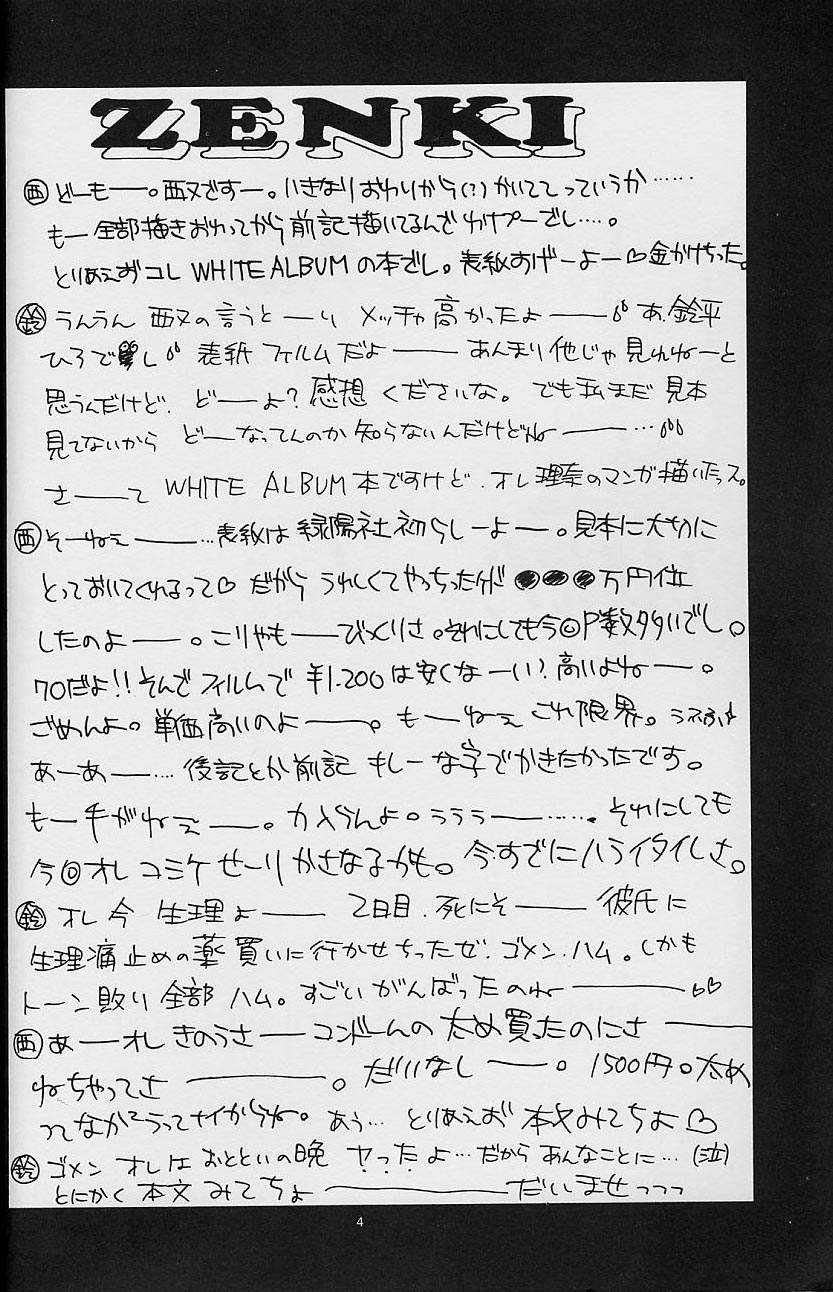 ZENKI
西 どーもー。西又ですー。いきなりおわりから(?)かいててっていうか……
もー全部描きおわってから前記描いてるんでわけプーでし…。
とりあえおコレ WHITE ALBUMの本でし。表紙すげーよー♡金かけちった。
鈴 うんうん 西又の言うとーり メッチャ高かったよー あ、鈴平
ひろでし 表紙 フィルムだよー あんまり他じゃ見れねーと
思うんだけど、どーよ?感想 くださいな。でも私まだ 見本
見てないから どーなってんのか知らないんだけどねー…
さーて WHITE ALBUM本ですけど、オレ理奈のマンガ描いたっス。
西 そーねぇー…表紙は緑陽社初らしーよー。見本に大切に
とっておいてくれるって♡ だから うれしくてやっちったけど ●●●万円位
したのよー。こりゃもーびっくりさ。それにしても今回P数多いでし。
70だよ!!そんでフィルムで ¥1.200は安くなーい?高いよねー。
ごめんよ。単価高いのよー。もーねぇ これ限界。
あーあー…. 後記とか前記 もしーな字でかきたかったです。
もー手がねぇー。力入らんよ。ううぅー……. それにしても
今回オレ コミケ せーりかさなるかも。今すでにハライタイしさ。
鈴 オレ今 生理よー 2日目、死にそー 彼氏に
生理痛止めの薬買いに行かせちったぜ、ゴメン、ハム。しかも
トーン貼り 全部 ハム。すごい がんばったのねー♡♡
西 あーオレ きのうさーコンドームの 太め買ったのにさー
ねちゃってさー。だいなしー。1500円。太め
ってなかなかうってナイからね。あぅ… とりあえお 本文みてちょ♡
鈴 ゴメン オレは おとといの晩 ヤったよ…だから あんなことに…(泣)
とにかく 本文 みてちょーだいませっっっ
4